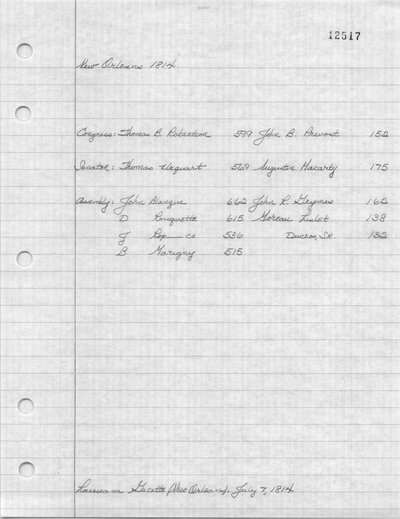 12517
New Orleans 1814
Congress: Thomas B. Robertson 599 John B. Prevost 152
Senator: Thomas Urquart 569 Augustin Macarty 175
Assembly: John Blanque 662 John R. Grymes 162
D Rouquette 615 Moreau Lislet 138
J 536 Ducros, Sr 132
B Marigny 515
Louisiana Gazette (New Orleans). July 7, 1814